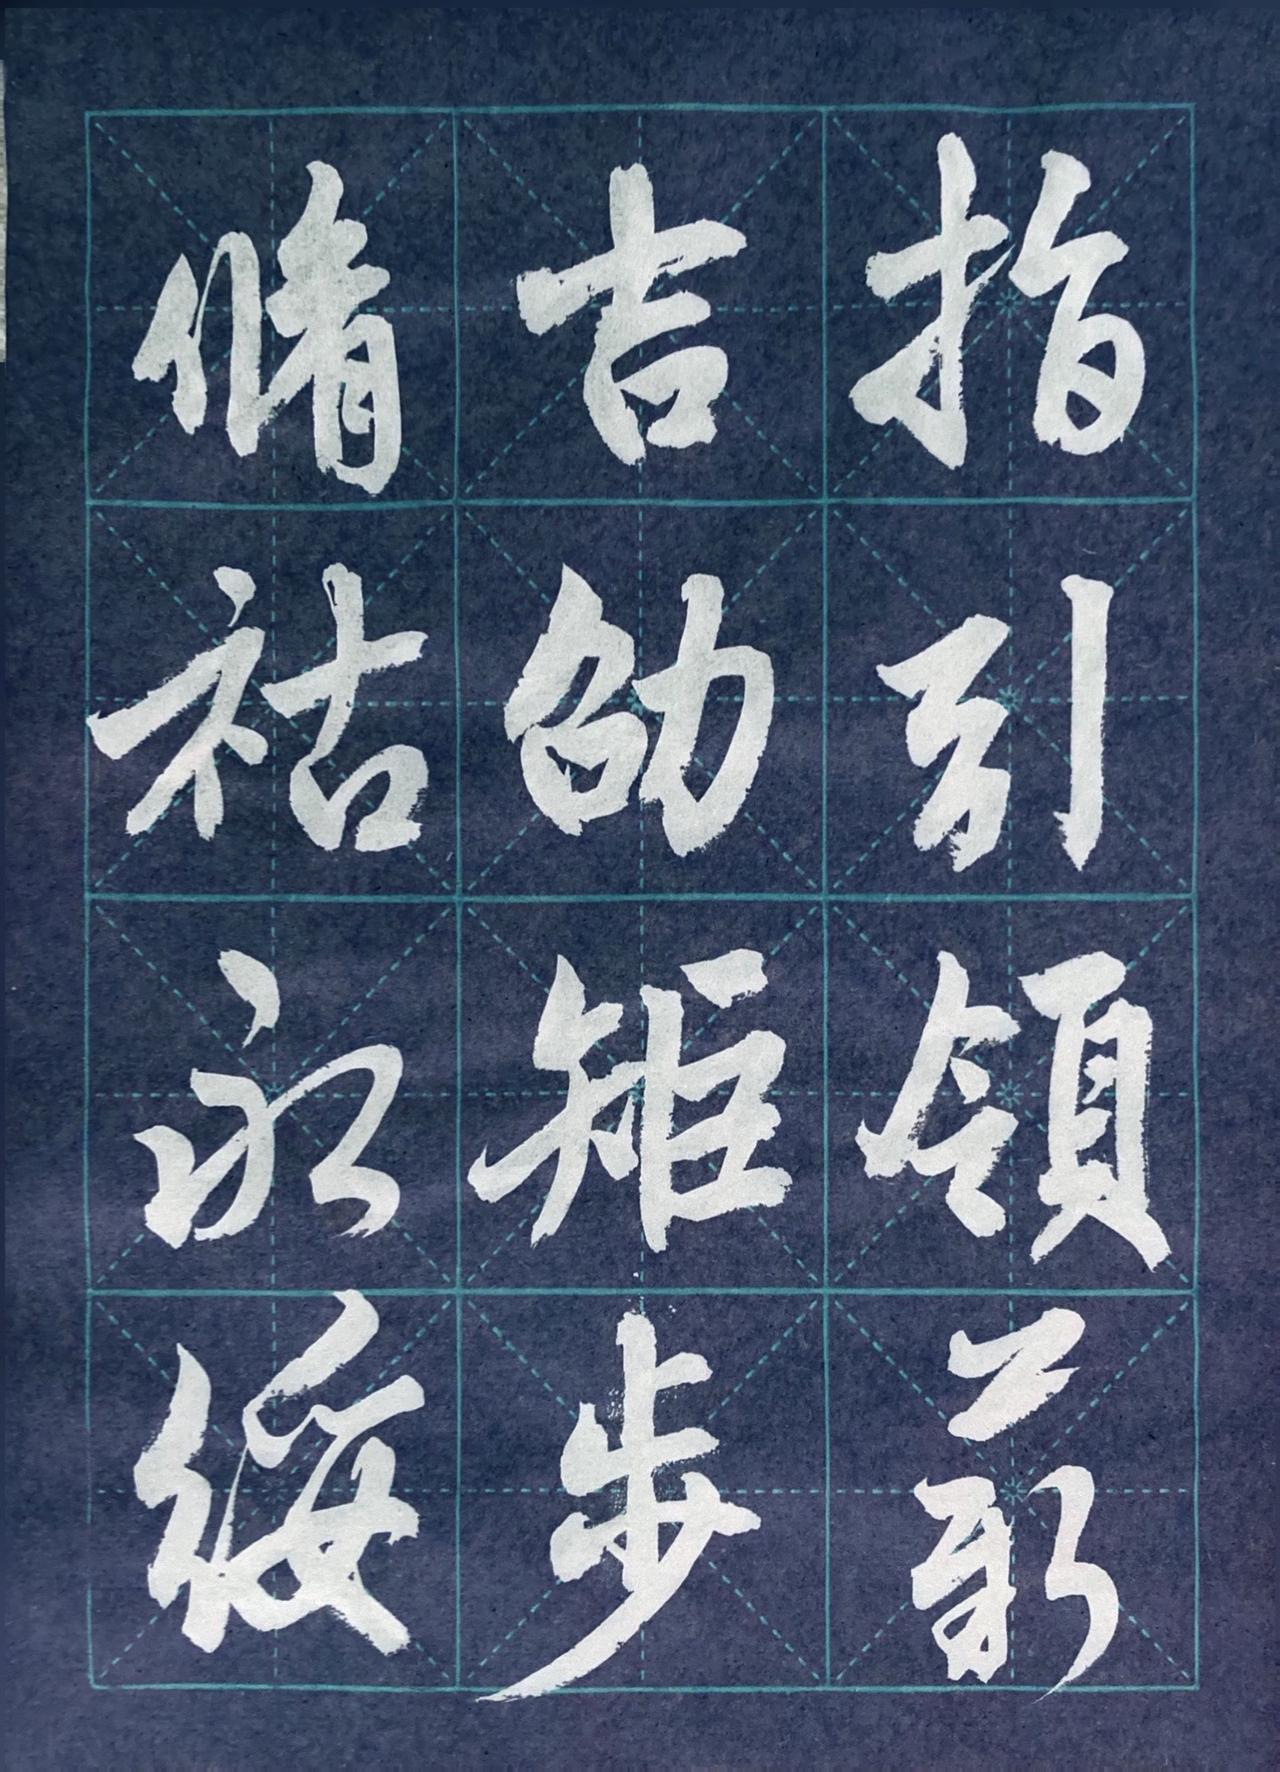 指引領薪
吉劭矩步
脩祜永綏